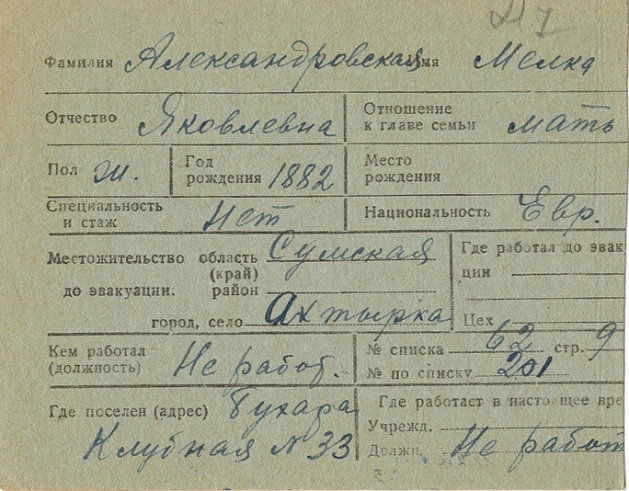 Фамилия Александровская Имя Мелка
Отчество Яковлевна Отношение к главе семьи мать
Пол ж. Год рождения 1882 Место рождения
Специальность и стаж Нет Национальность Евр.
Местожительство область Сумская Где работал до эвак
(край) ции
до эвакуации. район
город, село Ахтырка Цех
Кем работал (должность) Не работ. № списка 62 стр. 9
№ по списку 201
Где поселен (адрес) Бухара Где работает в настоящее вре
Клубная N 33 Учрежд.
Должн. Не работ